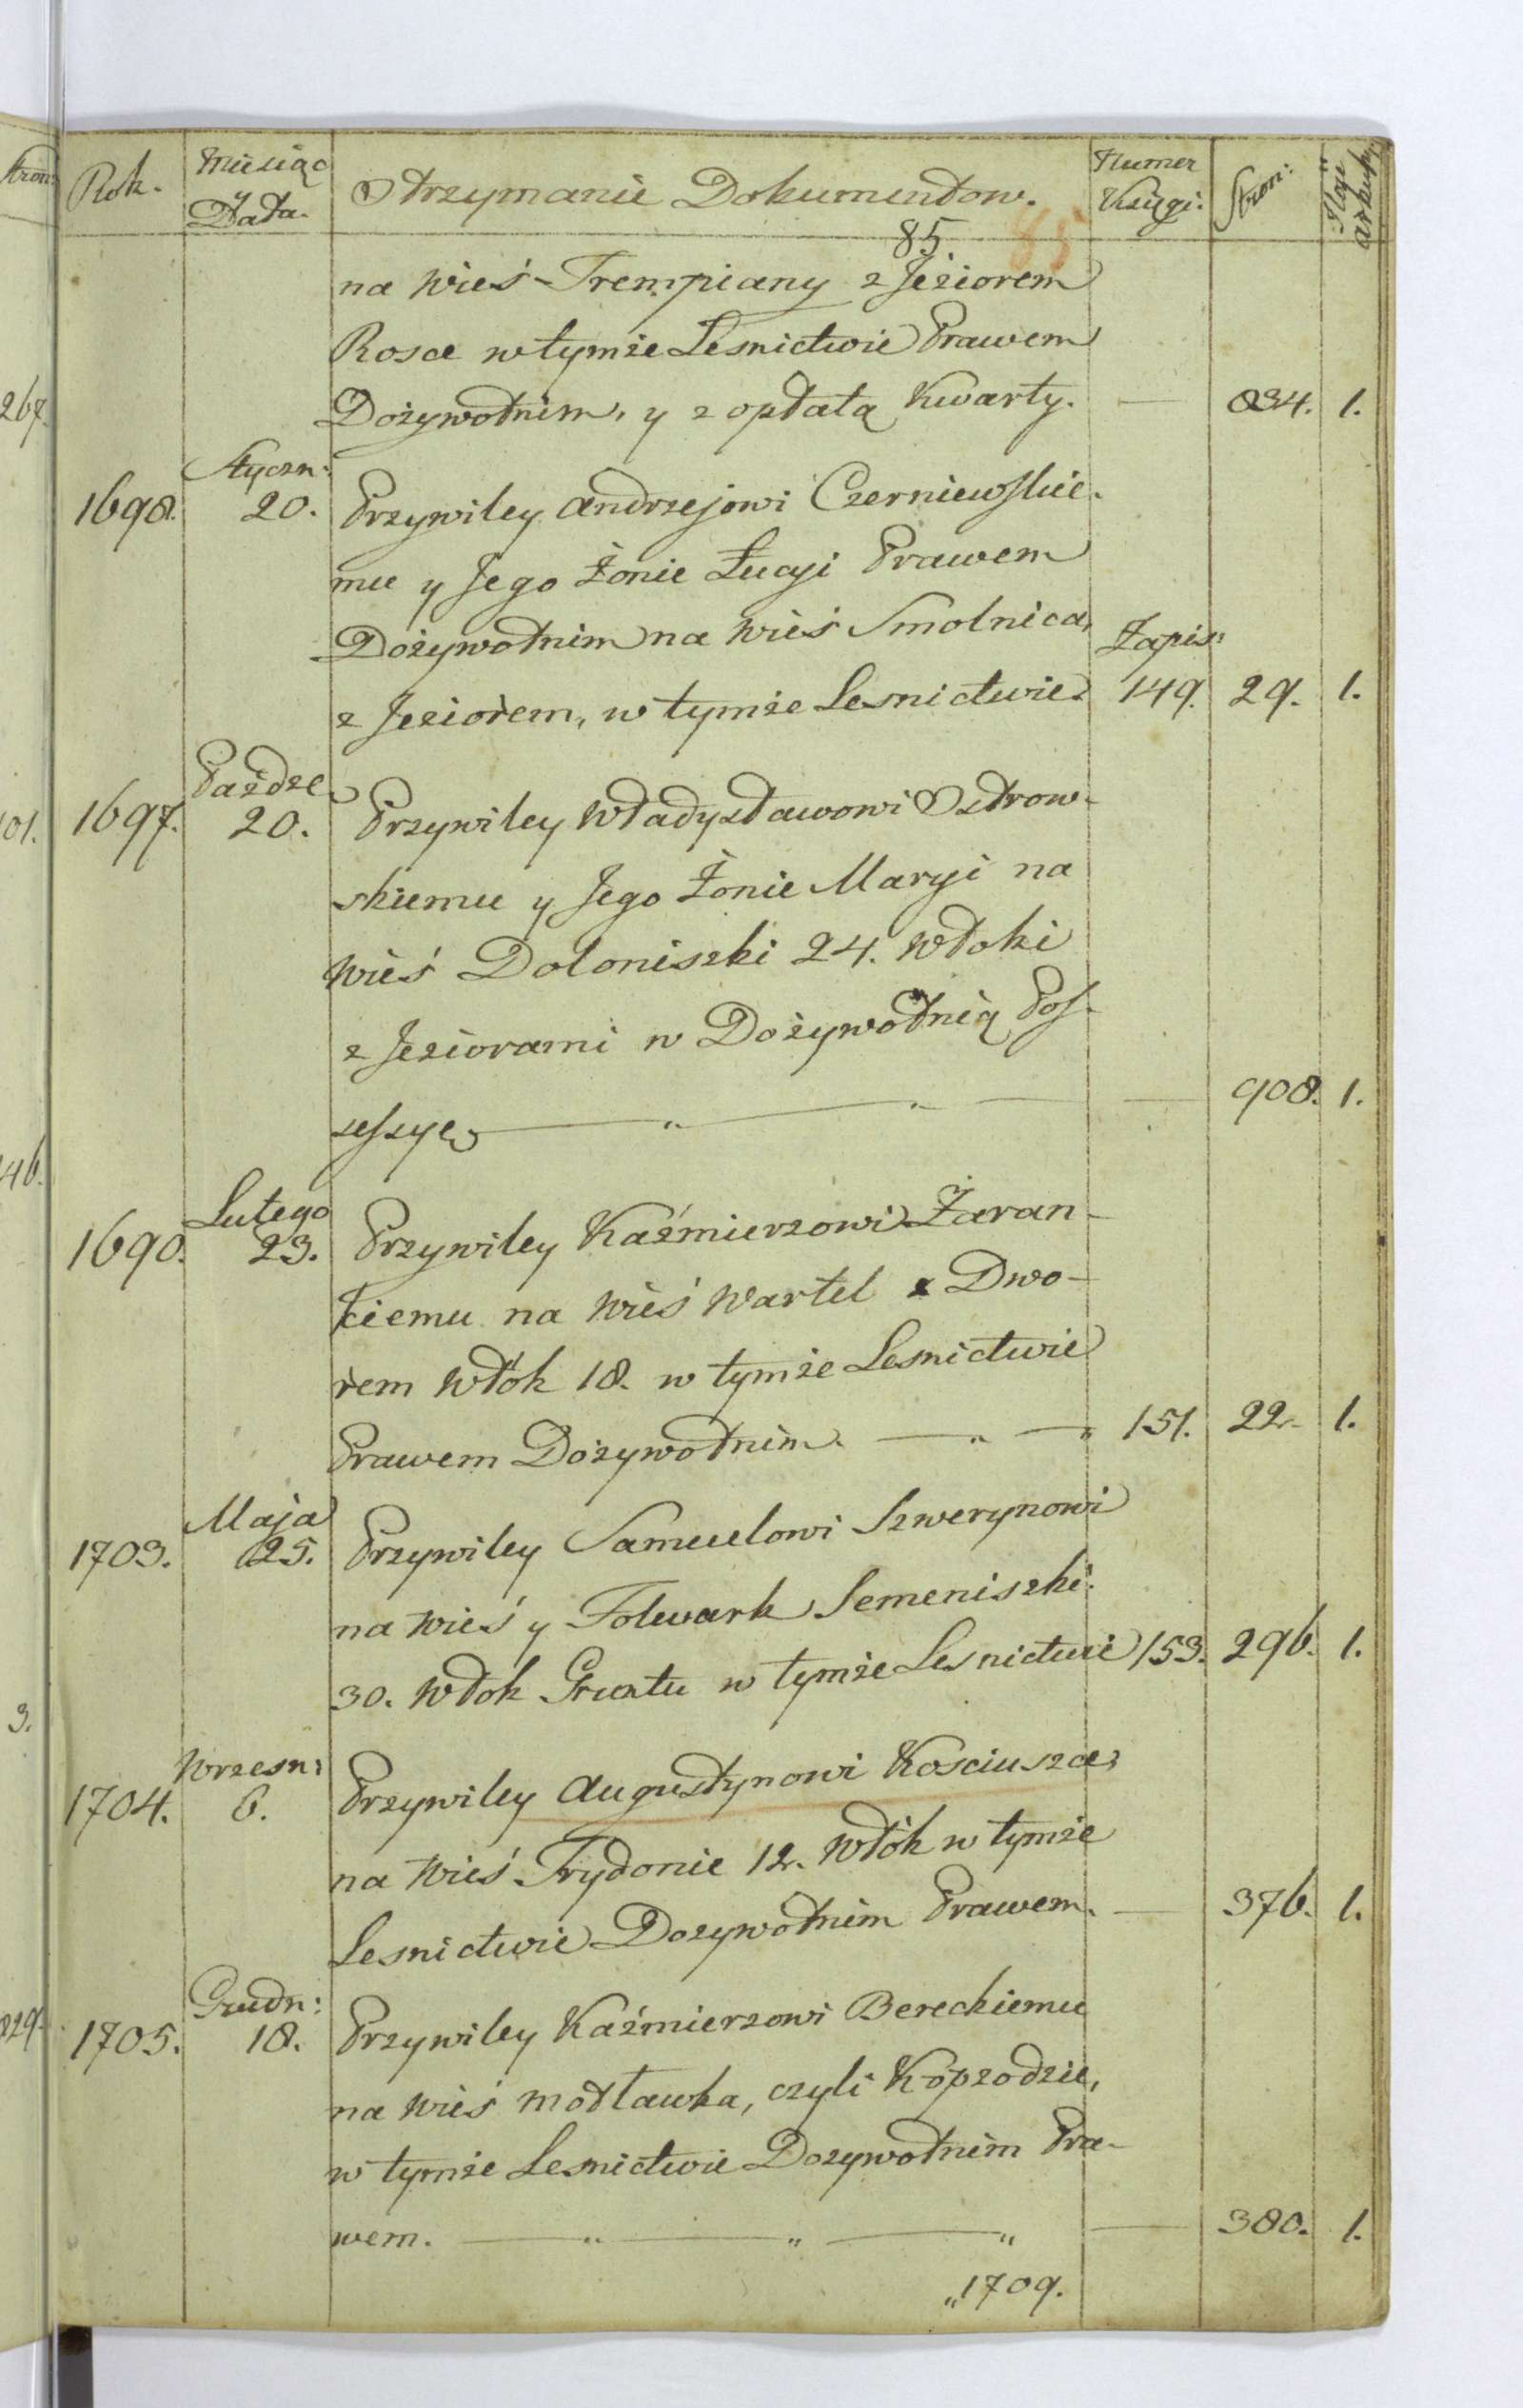 Rok. Miesiąc y Data. Otrzymanie Dokumentow. Numer Księgi: Stron: Ilość arkuszy
85 85
na Wieś Trempiany z Jeziorem
Rosce w tymże Lesnictwie Prawem
267. Dożywotnim, y z opłatą Kwarty. — 834. 1.
Styczn:
1698. 20. Przywiley Andrzejowi Czerniewskie-
mu y Jego Żonie Łucyi Prawem
Dożywotnim na Wieś Smolnica, Zapis:
z Jeziorem, w tymże Lesnictwie. 149. 29. 1.
Paźdze
101. 1697. 20. Przywiley Władysławowi Ostrow-
skiemu y Jego Żonie Maryi na
Wieś Doloniszki 24. Włoki
z Jeziorami w Dożywotnią Pos-
sessyę — „ — „ — — 908. 1.
Lutego
1690. 23. Przywiley Kaźmierzowi Żaran-
kiemu na Wieś Wartel z Dwo-
rem Włók 18. w tymże Lesnictwie
Prawem Dożywotnim. — „ — „ 151. 22. 1.
Maja
1703. 25. Przywiley Samuelowi Szwerynowi
na Wieś y Folwark Semeniszki
30. Włok Gruntu w tymże Lesnictwie 153. 296. 1.
Wrzesn:
1704. 6. Przywiley Augustynowi Kosciuszce,
na Wieś Trydonie 12. Włók w tymże
Lesnictwie Dozywotnim Prawem. — 376. 1.
Grudn:
1705. 18. Przywiley Kaźmierzowi Bereckiemu
na Wieś Motławka, czyli Kopzodzie,
w tymże Lesnictwie Dozywotnim Pra-
wem. — „ — „ — „ — 380. 1.
„1709.